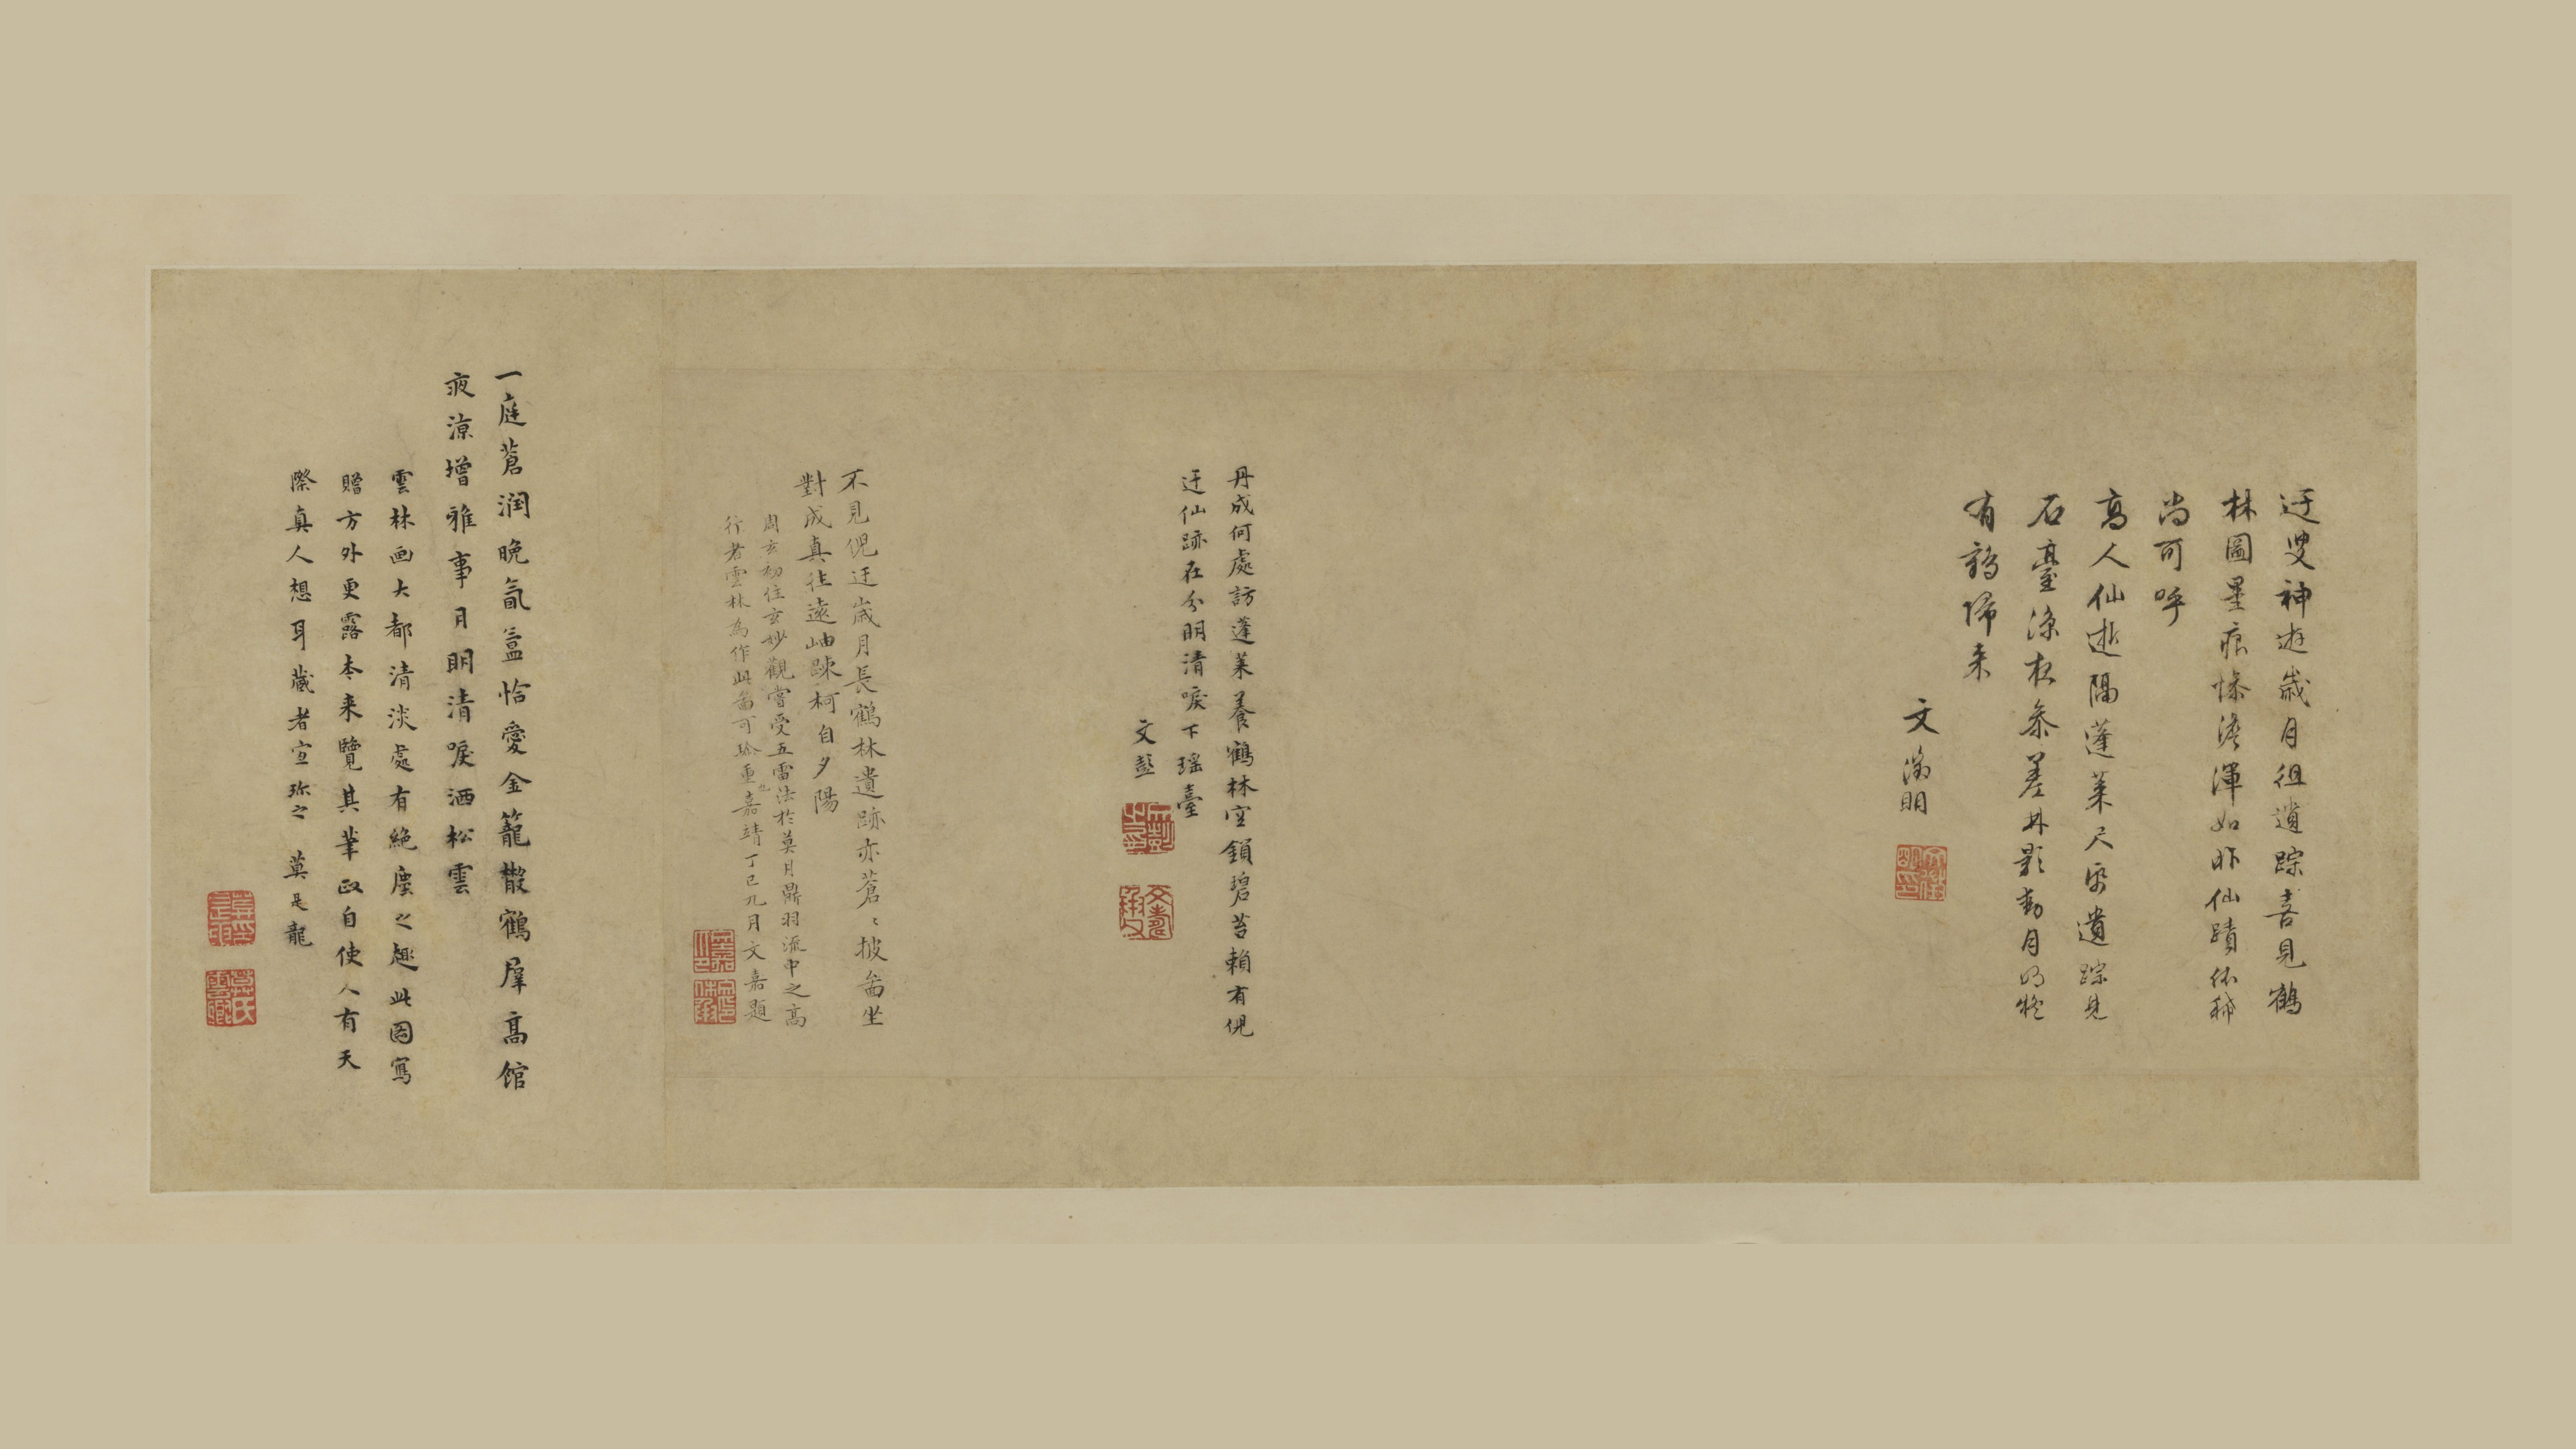 迂叟神遊歲月徂遺踪喜見鶴
林圖墨痕慘澹渾如昨仙蹟依稀
尚可呼
高人仙逝隔蓬萊尺紙遺踪見
石臺參差影動月明猶
有鶴歸来
文徵明
丹成何處訪蓬萊養鶴林空鎖碧苔賴有倪
迂仙跡在分明清唳下瑶臺
文彭
不見倪迂歲月長鶴林遺跡亦蒼〻披啚坐
對成真往遠岫踈柯自夕陽
周玄初住玄妙觀嘗受五雷法於莫月鼎羽流中之高
行者雲林為作此啚可珍重也嘉靖丁巳九月文嘉題
一庭蒼润晚氤氳恰愛金籠散鶴羣髙館
夜凉增雅事月明清唳洒松雲
雲林画大都清淡處有絶塵之趣此圖寫
贈方外更露本来覽其筆政自使人有天
際真人想耳藏者宜珎之 莫是龍